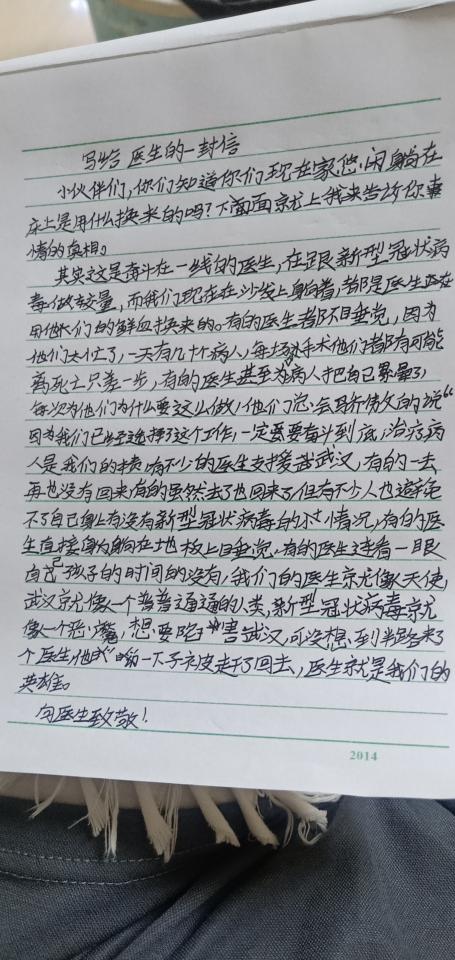 写给医生的一封信
小伙伴们，你们知道你们现在家悠闲躺在
床上是用什么换来的吗？下面就上我来告诉你事
情的真相。
其实这是奋斗在一线的医生，在跟新型冠状病
毒做较量，而我们现在在沙线上躺着，都是医生正在
用他们的鲜血换来的。有的医生都不目垂觉，因为
他们太忙了，一天有几十个病人，每场手术他们都有可能
离死亡只差一步，有的医生甚至为病人把自己累晕了，
每次为他们为什么要这么做，他们总会骄傲的说“
因为我们已经选择了这个工作，一定要奋斗到底，治疗病
人是我们的责 有不少的医生支援武汉，有的一去
再也没有回来有的虽然去了也回来了但有不少人也避免
不了自己身上有没有新型冠状病毒的 情况，有的医
生直接 躺在地板上目垂觉，有的医生连看一眼
自己孩子的时间的没有，我们的医生就像天使，
武汉就像一个普普通通的人类，新型冠状病毒就
像一个恶魔，想要陷害武汉，可没想到半路来了
个医生他 呦一下子被走了回去，医生就是我们的
英雄。
向医生致敬！
2014